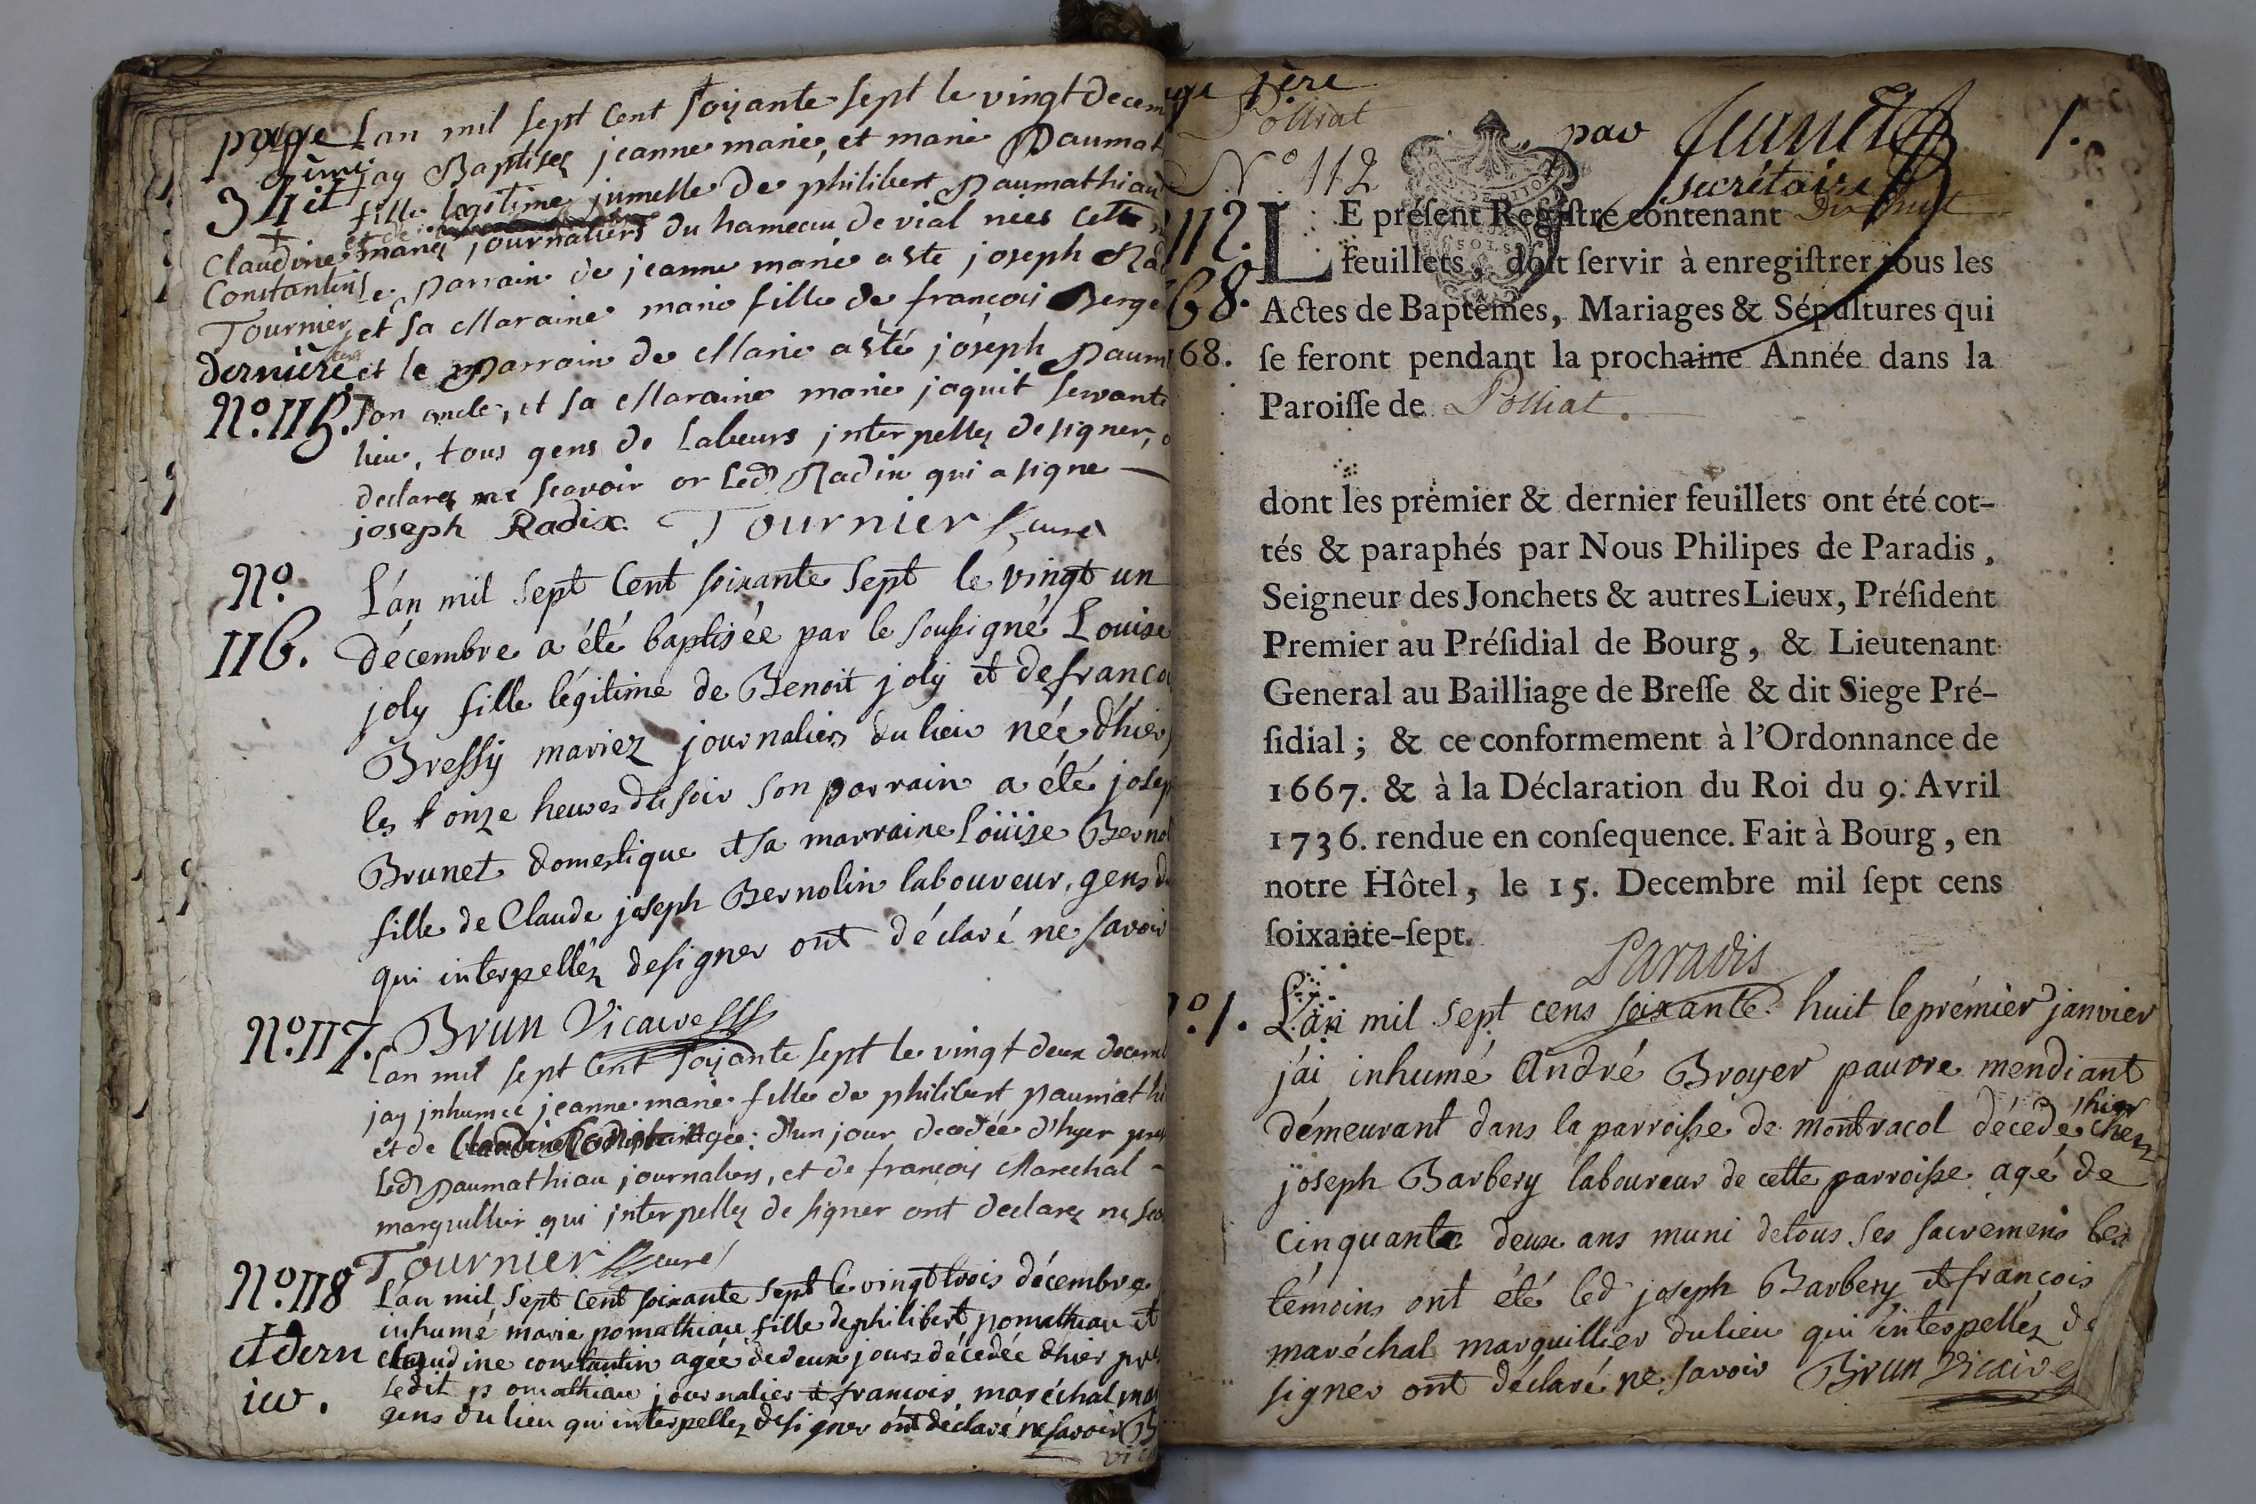 page
34 et
Claudine
Constantin
Tournier
dernière
N.o 115.
Lan mil sept Cent soixante sept le vingt decem
jay Baptisez jeanne marie, et marie Paumat
fille legitime jumelle de philibert Paumathiau
mariez journaliers du hameau de vial nées cette
le parrain de jeanne marie a ste joseph Rad
et sa Maraine marie fille de françois Berge
et le parrain de Marie a sté joseph Paum
son oncle, et sa Maraine marie joquit servante
lieu, tous gens de Labeurs interpellez de signer,
declarez ne scavoir or Led. Radix qui a signe
joseph Radix. Tournier curé
N.o
116.
L'an mil sept Cent soixante sept le vingt un
décembre a été baptisée par le soussigné Louise
joly fille légitime de Benoit joly et de franço
Bressy mariez journaliers du lieu née d'hier
les onze heures du soir son parrain a été josep
Brunet domestique et sa marraine Loüise Bernol
fille de Claude joseph Bernolin laboureur, gens d
qui interpellez de signer ont déclaré ne savoir
Brun Vicaire
N.o 117.
Lan mil sept Cent soixante sept le vingt deux decem
jay inhumee jeanne marie fille de philibert paumathi
et de Claudine Constantin agée d'un jour decedée d'hyer
Led. paumathiau journaliers, et de françois Marechal
marguillier qui interpellez de signer ont declarez ne
Tournier curé
N.o 118
et dern
ier.
L'an mil sept cent soixante sept le vingt trois décembre
inhumé marie pomathiau fille de philibert pomathiau et
claudine constantin agée de deux jours décédée d'hier
ledit pomathiau journalier et francois maréchal mar
gens du lieu qui interpellez de signer ont déclaré ne savoir B
ge 1ère
Polliat
N.o 112
par
secrétaire
1.
112.
68.
68.
LE préſent Regiſtre contenant
feuillets, doit ſervir à enregiſtrer tous les
Actes de Baptêmes, Mariages & Sépultures qui
ſe feront pendant la prochaine Année dans la
Paroiſſe de Polliat.
dont les premier & dernier feuillets ont été cot-
tés & paraphés par Nous Philipes de Paradis,
Seigneur des Jonchets & autres Lieux, Préſident
Premier au Préſidial de Bourg, & Lieutenant
General au Bailliage de Breſſe & dit Siege Pré-
ſidial; & ce conformement à l'Ordonnance de
1667. & à la Déclaration du Roi du 9. Avril
1736. rendue en conſequence. Fait à Bourg, en
notre Hôtel, le 15. Decembre mil ſept cens
ſoixante-ſept.
Paradis
o 1.
L'an mil sept cens soixante huit le prémier janvier
j'ai inhumé André Broyer pauvre mendiant
démeurant dans la parroisse de montracol décédé hier chez
joseph Barbery laboureur de cette parroisse agé de
cinquante deux ans muni de tous ses sacremens les
témoins ont été led joseph Barbery et françois
maréchal marguillier du lieu qui interpellez de
signer ont déclaré ne savoir Brun Vicaire